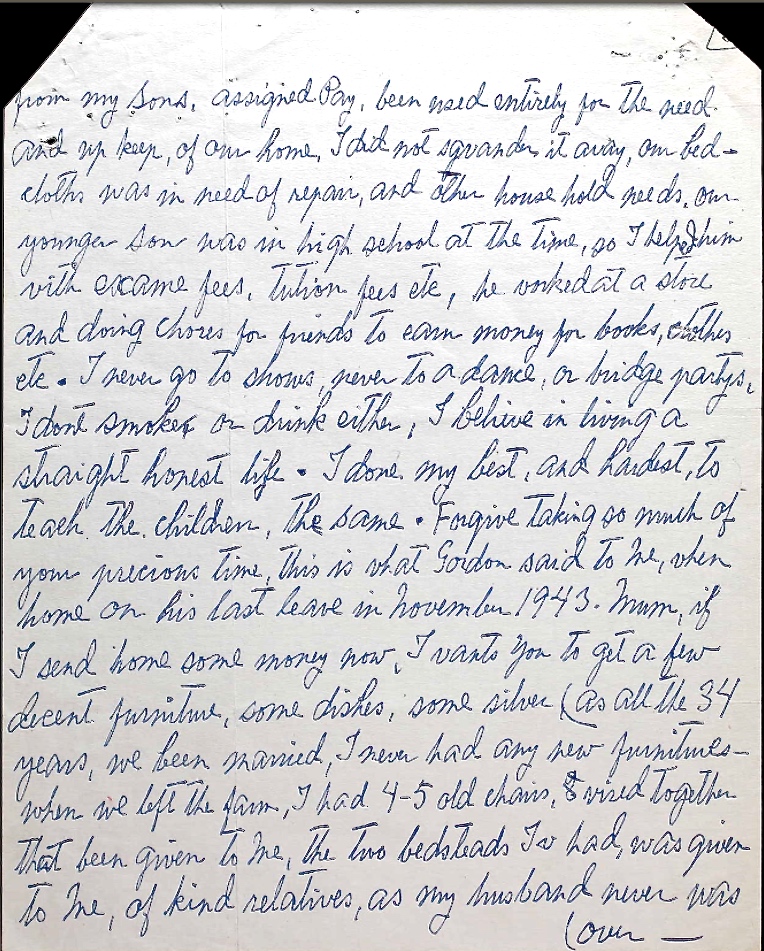 from my sons, assigned Pay, been used entirely for the need
and up keep, of our home, I did not sqvander it away, our bed-
cloths was in need of repair, and other house hold needs, our
younger son was in high school at the time, so I helped him
vith exame fees, tution fees etc, he vorked at a store
and doing chores for friends to earn money for books, clothes
etc. I never go to shows, never to a dance, or bridge partys,
I dont smoke or drink either, I believe in living a
straight honest life. I done my best, and hardest, to
teach the children, the same. Forgive taking so much of
your precious time, this is vhat Gordon said to Me, vhen
home on his last leave in November 1943. Mum, if
I send home some money now, I vants you to get a few
decent furniture, some dishes, some silver (as all the 34
years, we been married, I never had any new furnitures-
vhen we left the farm, I had 4-5 old chairs, & vired together
that been given to Me, the two bedsteads Iv had, was given
to Me, of kind relatives, as my husband never was
(over —